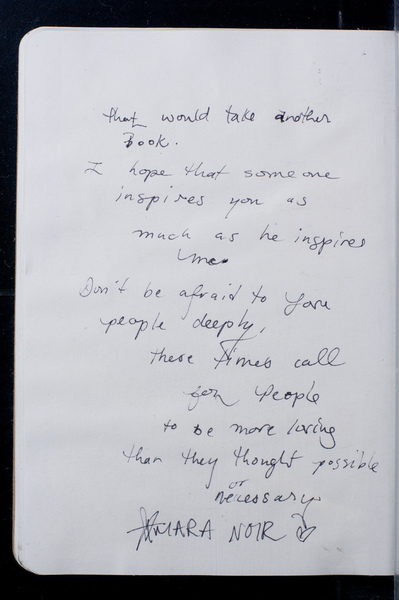 that would take another
Book.
I hope that someone
inspires you as
much as he inspires
me
Don't be afraid to love
people deeply,
these times call
for people
to be more loving
than they thought possible
or
necessary.
AMARA NOIR